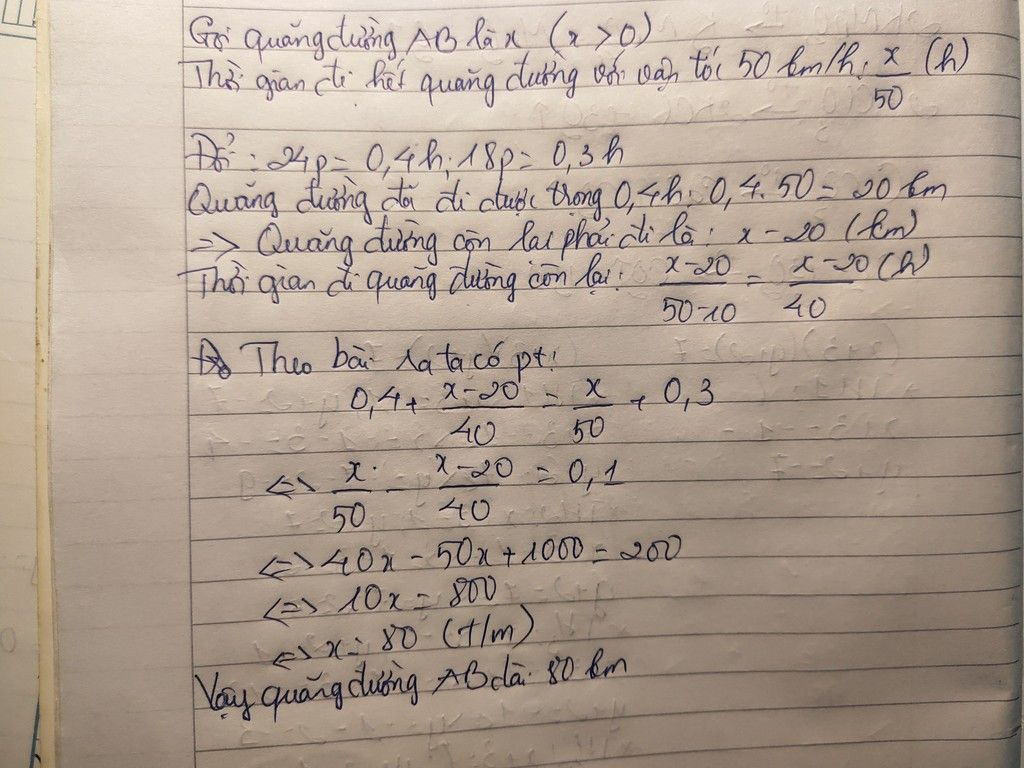 Gọi quãng đường AB là x (x > 0)
Thời gian đi hết quãng đường với vận tốc 50 km/h: x/50 (h)
Đổi: 24p = 0,4h; 18p = 0,3h
Quãng đường đã đi được trong 0,4h: 0,4.50 = 20 km
=> Quãng đường còn lại phải đi là: x - 20 (km)
Thời gian đi quãng đường còn lại: x-20/50-10 = x-20/40 (h)
Theo bài ra ta có pt:
0,4 + x-20/40 = x/50 + 0,3
<=> x/50 - x-20/40 = 0,1
<=> 40x - 50x + 1000 = 200
<=> 10x = 800
<=> x = 80 (t/m)
Vậy quãng đường AB dài: 80 km